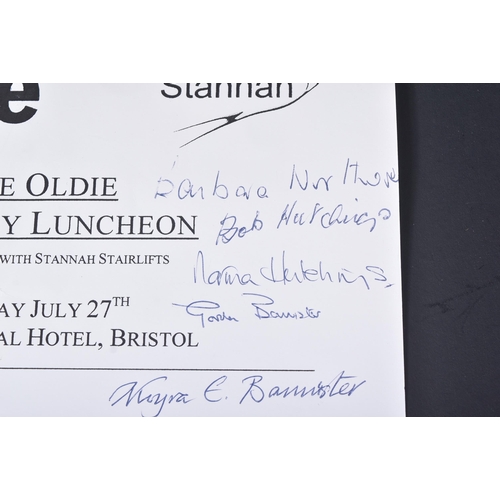 e
Stannah
E OLDIE
Y LUNCHEON
WITH STANNAH STAIRLIFTS
AY JULY 27TH
AL HOTEL, BRISTOL
Barbara Northove
Bob Hutchings
Norma Hutchings.
Gordon Bannister
Moyra E. Bannister